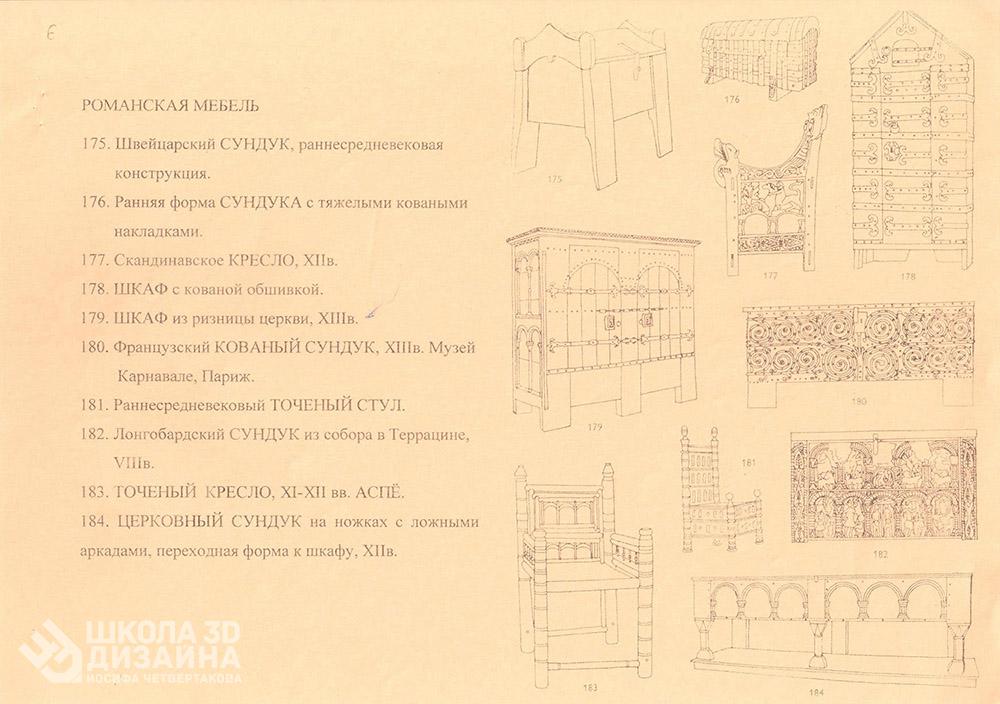 6
РОМАНСКАЯ МЕБЕЛЬ
175. Швейцарский СУНДУК, раннесредневековая
конструкция.
176. Ранняя форма СУНДУКА с тяжелыми коваными
накладками.
177. Скандинавское КРЕСЛО, XIIв.
178. ШКАФ с кованой обшивкой.
179. ШКАФ из ризницы церкви, XIIIв.
180. Французский КОВАНЫЙ СУНДУК, XIIIв. Музей
Карнавале, Париж.
181. Раннесредневековый ТОЧЕНЫЙ СТУЛ.
182. Лонгобардский СУНДУК из собора в Террацине,
VIIIв.
183. ТОЧЕНЫЙ КРЕСЛО, XI-XII вв. АСПЁ.
184. ЦЕРКОВНЫЙ СУНДУК на ножках с ложными
аркадами, переходная форма к шкафу, XIIв.
175
176
177
178
179
180
181
182
183
184
ШКОЛА 3D
ДИЗАЙНА
ИОСИФА ЧЕТВЕРТАКОВА